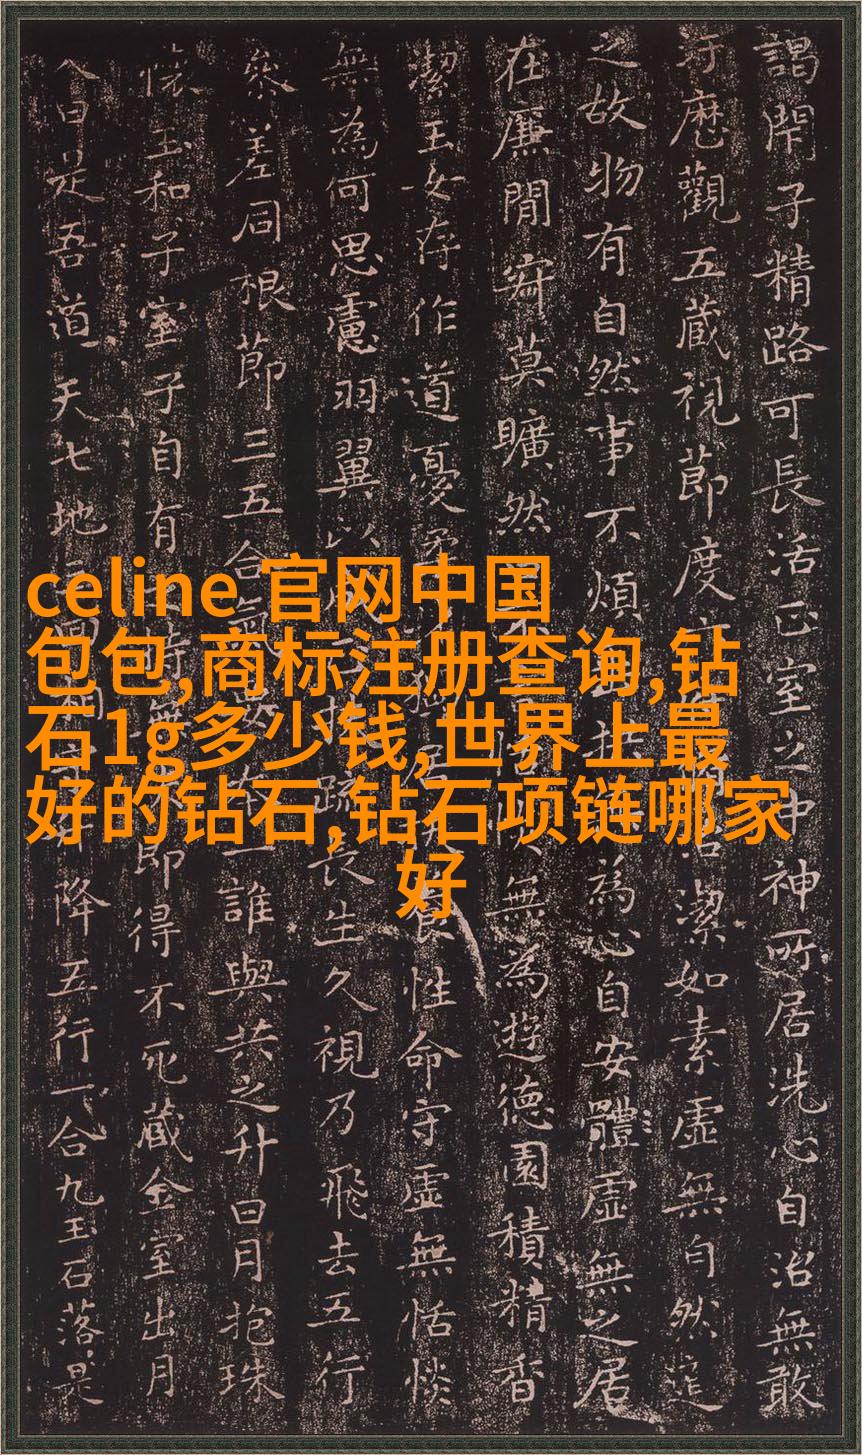 謁閇子精路可長活正室之中神所居洗心自治無敢
汙歷觀五藏視節度潔如素虛無自然道
之故物有自然事不煩為心自安體虛無之居
在廉閒寂莫曠然無為遊德園積精香
潔玉女存作道憂性命守虛無恬惔
無為何思慮羽翼以疏長生久視乃飛去五行
參差同根節三五合一誰與共之升日月抱珠
懷玉和子室子自有即得不死藏金室出月
入日是吾道天七地降五行一合九玉石落是
celine 官网中国
包包,商标注册查询,钻
石1g多少钱,世界上最
好的钻石,钻石项链哪家
好